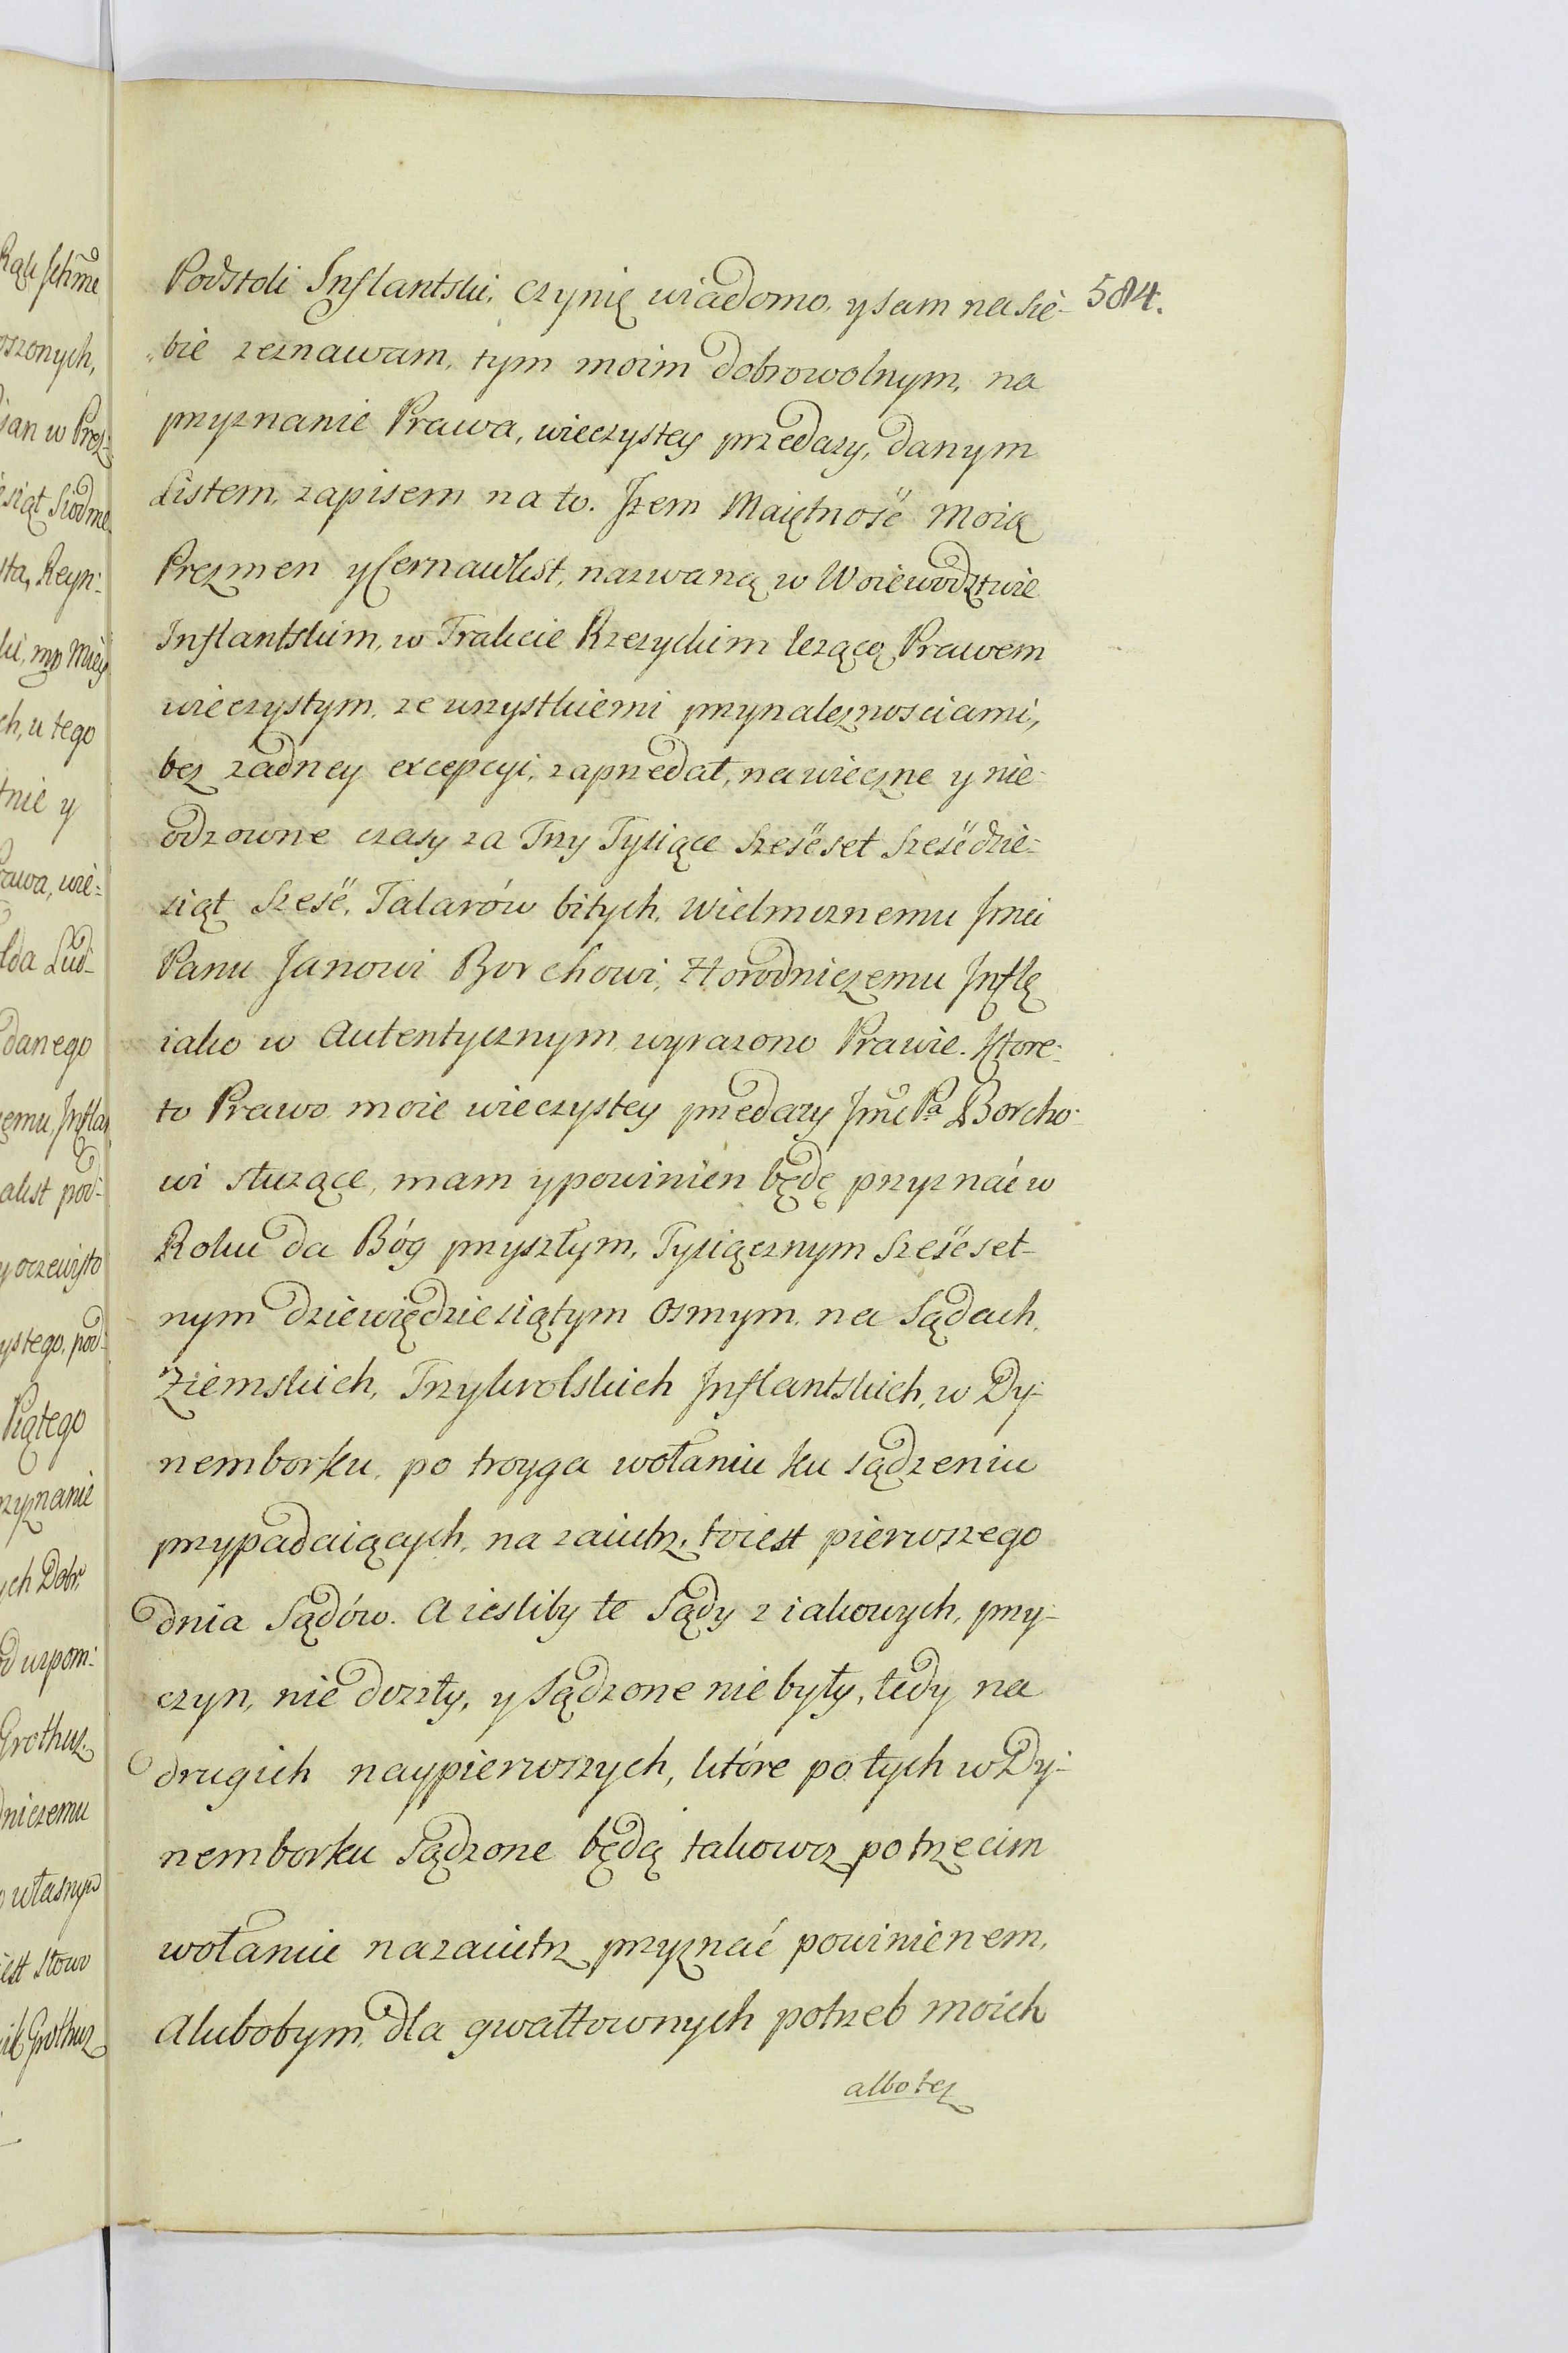 584.
Podstoli Inflantski, czynię wiadomo, y sam na sie-
bie zeznawam, tym moim dobrowolnym, na
przyznanie Prawa, wieczystey przedaży, danym
Listem, zapisem na to. Iżem Maiętność Moię
Prezmen y Cernawkst, nazwaną w Woiewodztwie
Inflantskim, w Trakcie Rzezyckim leżącą Prawem
wieczystym, ze wszystkiemi przynaleznosciami,
bez żadney excepcyi, zaprzedał, na wieczne y nie-
odzowne czasy za Trzy Tysiące Sześćset Sześćdzie-
siąt Sześć, Talarów bitych, Wielmoznemu Jmci
Panu Janowi Borchowi, Horodniczemu Inflę
iako w Autentycznym wyrazono Prawie. Ktore-
to Prawo moie wieczystey przedazy Jmć Pa Borcho-
wi służące, mam y powinien będę przyznać w
Roku da Bóg przyszłym, Tysiącznym Sześćset-
nym dziewiędziesiątym osmym, na Sądach,
Ziemskich, Trzykrolskich Inflantskich, w Dy-
nemborku, po troyga wołaniu ku sądzeniu
przypadaiących, na zaiutrz, to iest pierwszego
dnia Sądów. A iesliby te Sądy z iakowych, przy-
czyn, nie doszły, y Sądzone nie były, tedy na
drugich naypierwszych, które po tych w Dy-
nemborku Sądzone będą takowoz po trzecim
wołaniu nazaiutrz przyznać powinienem,
Alubobym, dla gwałtownych potrzeb moich
albo tez